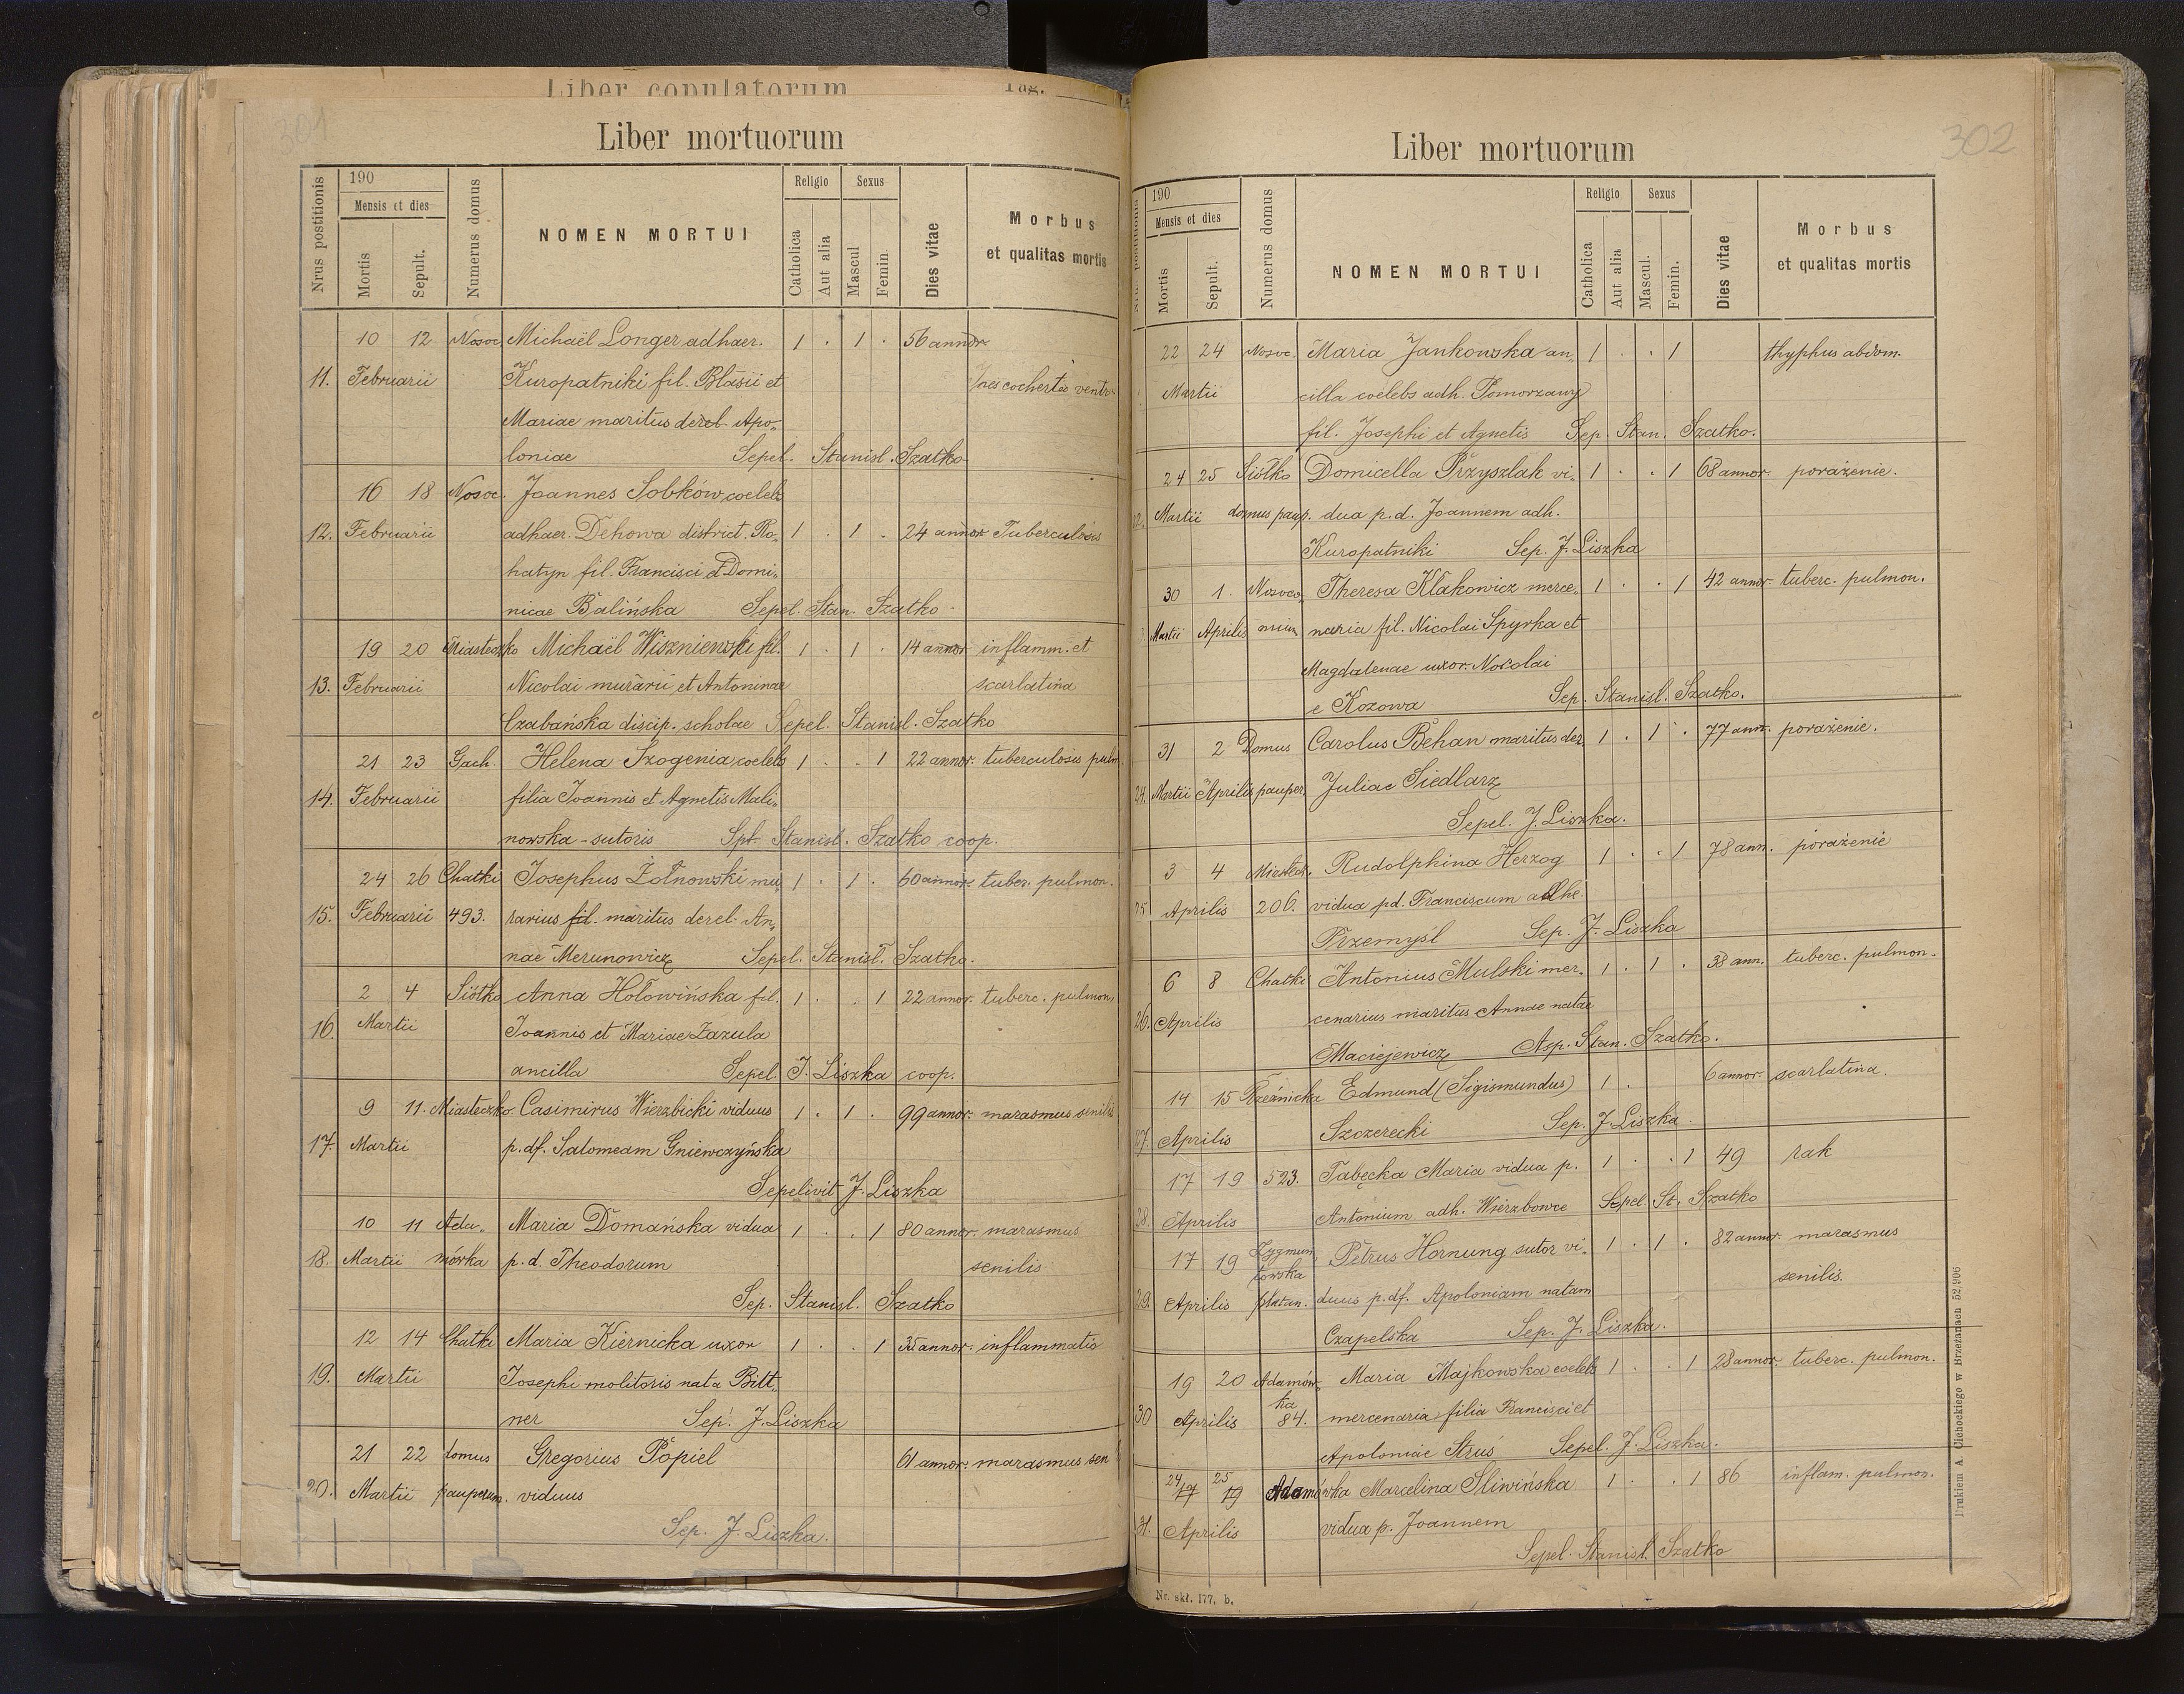 Liber copulatorum Pag.
301
Liber mortuorum
Nrus postitionis
190
Mensis et dies
Mortis
Sepult.
Numerus domus
NOMEN MORTUI
Religio
Catholica
Aut alia
Sexus
Mascul
Femin.
Dies vitae
Morbus
et qualitas mortis
10 12 Nosoc. Michaël Longer adhaer. 1 . 1 . 56 annor.
11. Februarii Kuropatniki fil. Blasii et
ventr.
Mariae maritus derel. Apo„
loniae Sepel. Stanisl. Szatko
16 18 Nosoc. Joannes Sobków coelebs
12. Februarii adhaer. Dehowa district. Ro„ 1 . 1 . 24 annor Tuberculosis
hatyn fil. Francisci et Domi„
nicae Balińska Sepel. Stan. Szatko.
19 20 Miasteczko Michaël Wiszniewski fil. 1 . 1 . 14 annor inflamm. et
13. Februarii Nicolai murarii et Antoninae scarlatina
Czabańska discip. scholae Sepel. Stanisl. Szatko
21 23 Gach. Helena Szogenia coelebs 1 . . 1 22 annor. tuberculosis pulm.
14. Februarii filia Joannis et Agnetis Mali„
nowska - sutoris Spt. Stanisl. Szatko coop.
24 26 Chatki Josephus Żołnowski mu„ 1 . 1 . 60 annor. tuber. pulmon.
15. Februarii 493. rarius fil. maritus derel. An„
nae Merunowicz Sepel. Stanisl. Szatko.
2 4 Siółko Anna Hołowińska fil. 1 . . 1 22 annor. tuberc. pulmon.
16. Martii Joannis et Mariae Zazula
ancilla Sepel. J. Liszka coop.
9 11. Miasteczko. Casimirus Wierzbicki viduus 1 . 1 . 99 annor. marasmus senilis
17. Martii p. df. Salomeam Gniewczyńska
Sepelivit J. Liszka
10 11 Ada„ Maria Domańska vidua 1 . . 1 80 annor. marasmus
18. Martii mówka p. d. Theodorum senilis
Sep. Stanisl. Szatko
12 14 Chatki Maria Kiernicka uxor 1 . . 1 35 annor. inflammatio
19. Martii Josephi molitoris nata Bitt„
ner Sep. J. Liszka
21 22 domus Gregorius Popiel 61 annor. marasmus sen
20. Martii pauperum. viduus
Sep. J. Liszka.
302
Liber mortuorum
Nru. postitionis
190
Mensis et dies
Mortis
Sepult.
Numerus domus
NOMEN MORTUI
Religio
Catholica
Aut alia
Sexus
Mascul.
Femin.
Dies vitae
Morbus
et qualitas mortis
22 24 Nosoc. Maria Jankowska an„ 1 . . 1 thyphus abdom.
Martii cilla coelebs adh. Pomorzany
fil. Josephi et Agnetis Sep. Stan. Szatko.
24 25 Siółko Domicella Przyszlak vi„ 1 . . 1 68 annor. porażenie.
Martii domus paup. dua p. d. Joannem adh.
Kuropatniki Sep. J. Liszka
30 1. Nosoco„ Theresa Klakowicz merce„ 1 . . 1 42 annor. tuberc. pulmon.
Martii Aprilis mium naria fil. Nicolai Spyrka et
Magdalenae uxor. Nicolai
e Kozowa Sep. Stanisl. Szatko.
31 2 Domus Carolus Behan maritus der. 1 . 1 . 77 ann. porażenie.
24. Martii Aprilis pauper. Juliae Siedlarz
Sepel. J. Liszka.
3 4 Miasteck. Rudolphina Herzog 1 . . 1 78 ann. porażenie
25 Aprilis 206. vidua pd. Franciscum adhe.
Przemyśl Sep. J. Liszka
6 8 Chatki Antonius Mulski mer. 1 . 1 . 38 ann. tuberc. pulmon.
26. Aprilis cenarius maritus Annae natae
Maciejewicz Asp. Stan. Szatko.
14 15 Rzeźnicka Edmund (Sigismundus) 1 . 6 annor. scarlatina.
27. Aprilis Szczerecki Sep. J. Liszka.
17 19 523. Tabęcka Maria vidua p. 1 . . 1 49 rak
28. Aprilis Antonium adh. Wierzbowce Sepel. St. Szatko
17 19 Zygmun„ Petrus Hornung sutor vi„ 1 . 1 . 82 annor. marasmus
towska senilis.
29. Aprilis duus p. df. Apoloniam natam
Czapelska Sep. J. Liszka.
19 20 Adamów„ Maria Majkowska coelebs 1 . . 1 28 annor. tuberc. pulmon.
ka
30 Aprilis 84. mercenaria filia Francisci et
Apoloniae Struś Sepel. J. Liszka.
24 25
17 19 Adamówka Marcelina Sliwińska 1 . . 1 86 inflam. pulmon.
31. Aprilis vidua p. Joannem
Sepel. Stanisl. Szatko
Nr. skł. 177. b.
Drukiem A. Cichockiego w Brzeżanach 52.906